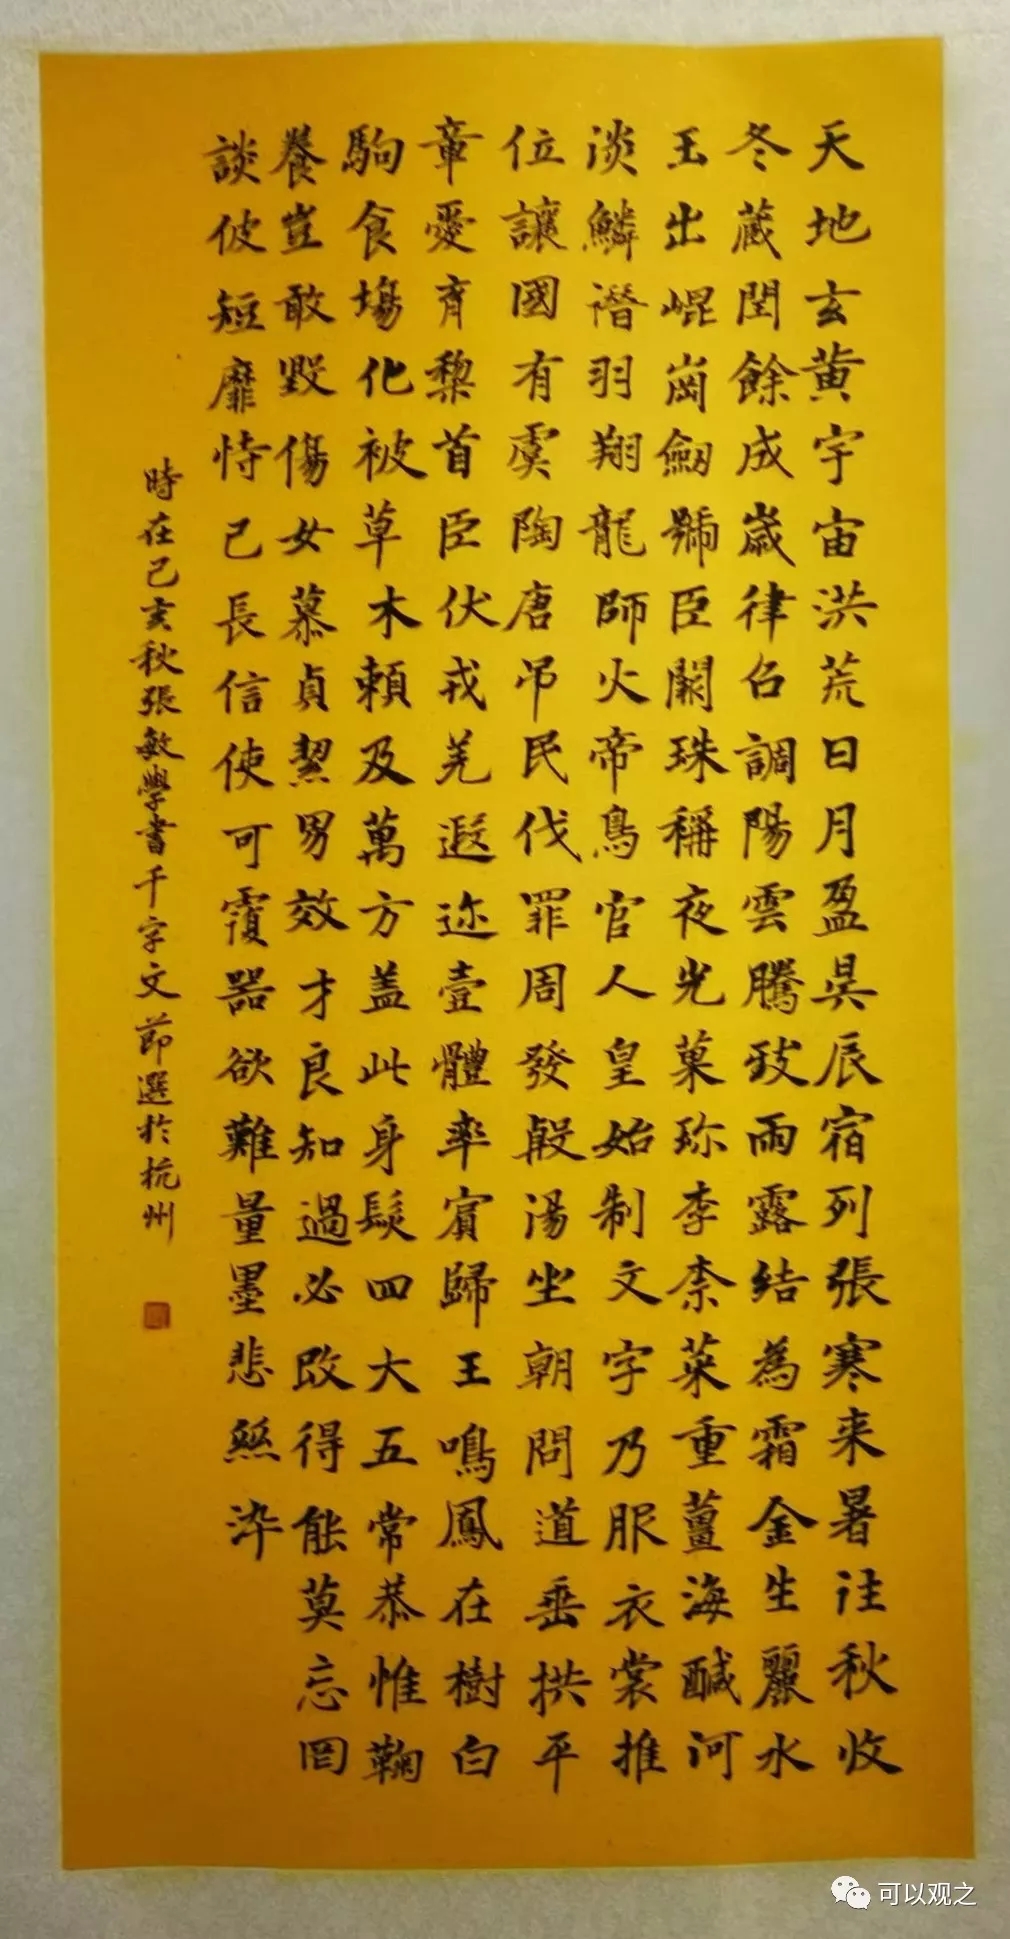 天地玄黄宇宙洪荒日月盈昃辰宿列張寒来暑往秋收
冬蔵閏餘成歳律召調陽雲騰致雨露結為霜金生麗水
玉出崐崗劒號臣闕珠稱夜光菓珎李柰菜重薑海醎河
淡鱗潛羽翔龍師火帝鳥官人皇始制文字乃服衣裳推
位讓國有虞陶唐吊民伐罪周發殷湯坐朝問道垂拱平
章愛育黎首臣伏戎羌遐迩壹體率賓歸王鳴鳳在樹白
駒食場化被草木頼及萬方盖此身髮四大五常恭惟鞠
養豈敢毀傷女慕貞絜男效才良知過必改得能莫忘罔
談彼短靡恃己長信使可覆器欲難量墨悲絲染
時在己亥秋張敏學書千字文節選於杭州
可以观之